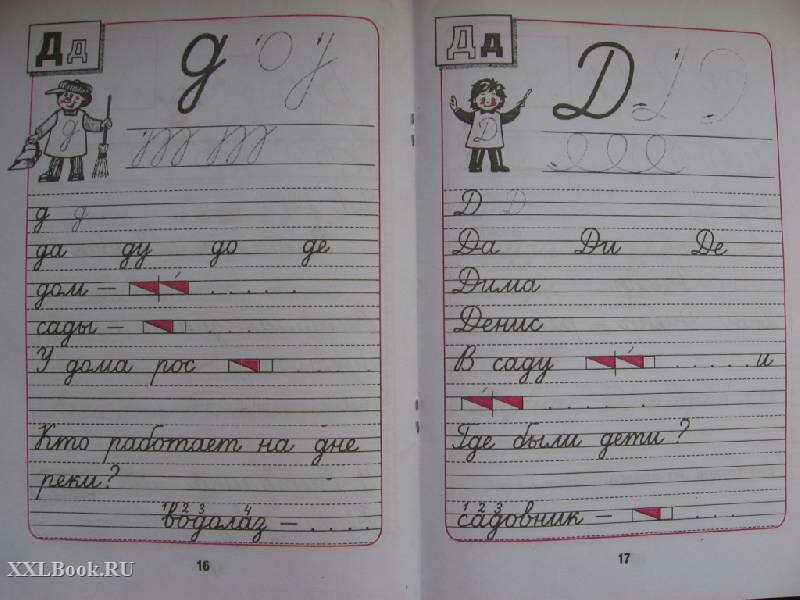 Д д
д
д
д д
да ду до де
дом —
сады —
У дома рос
Кто работает на дне
реки?
1 2 3 4
водолаз —
16
Д д
Д
Д
Д Д
Да Ди Де
Дима
Денис
В саду и
Где были дети?
1 2 3
садовник —
17
XXLBook.RU